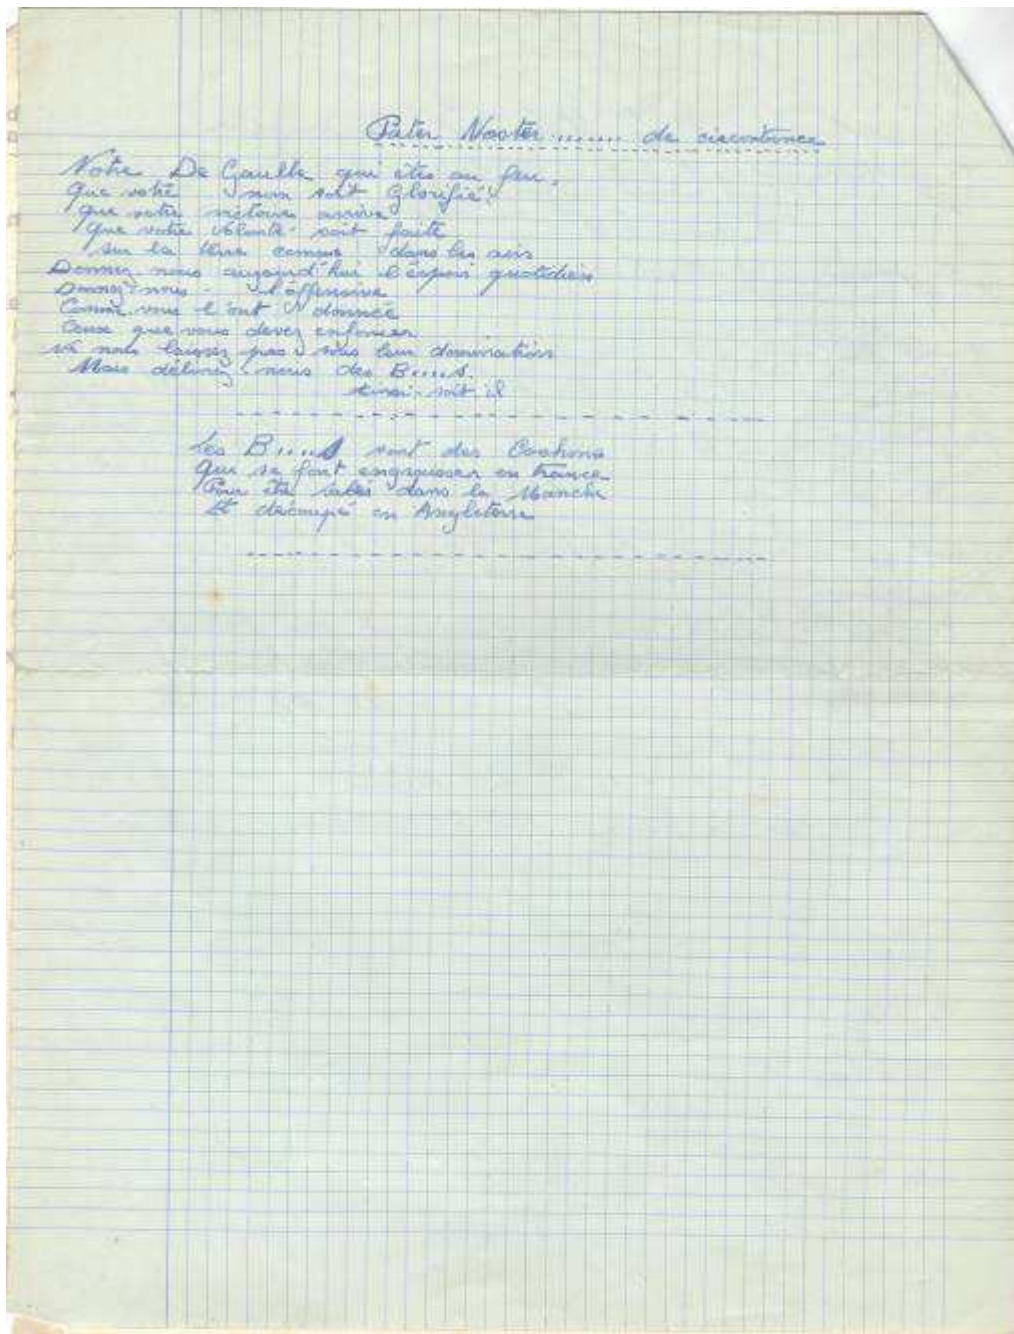 Pater Noster ....... de circontance
Notre De Gaulle qui êtes au feu,
Que votre nom soit Glorifié!
que votre victoire arrive
Que votre volonté soit faite
sur la terre comme dans les airs
Donnez nous aujourd'hui l'espoir quotidien
Donnez-nous - l'offensive
Comme vous l'ont donnée
Ceux que vous devez enfoncer
Ne nous laissez pas sous leur domination
Mais délivrez-nous des B....s.
ainsi-soit il
Les B....s sont des Cochons
Qui se font engraisser en France
Pour être salés dans la Manche
Et découpé en Angleterre